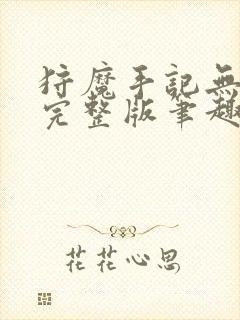 狩魔手記無
完整版筆趣
花花心思